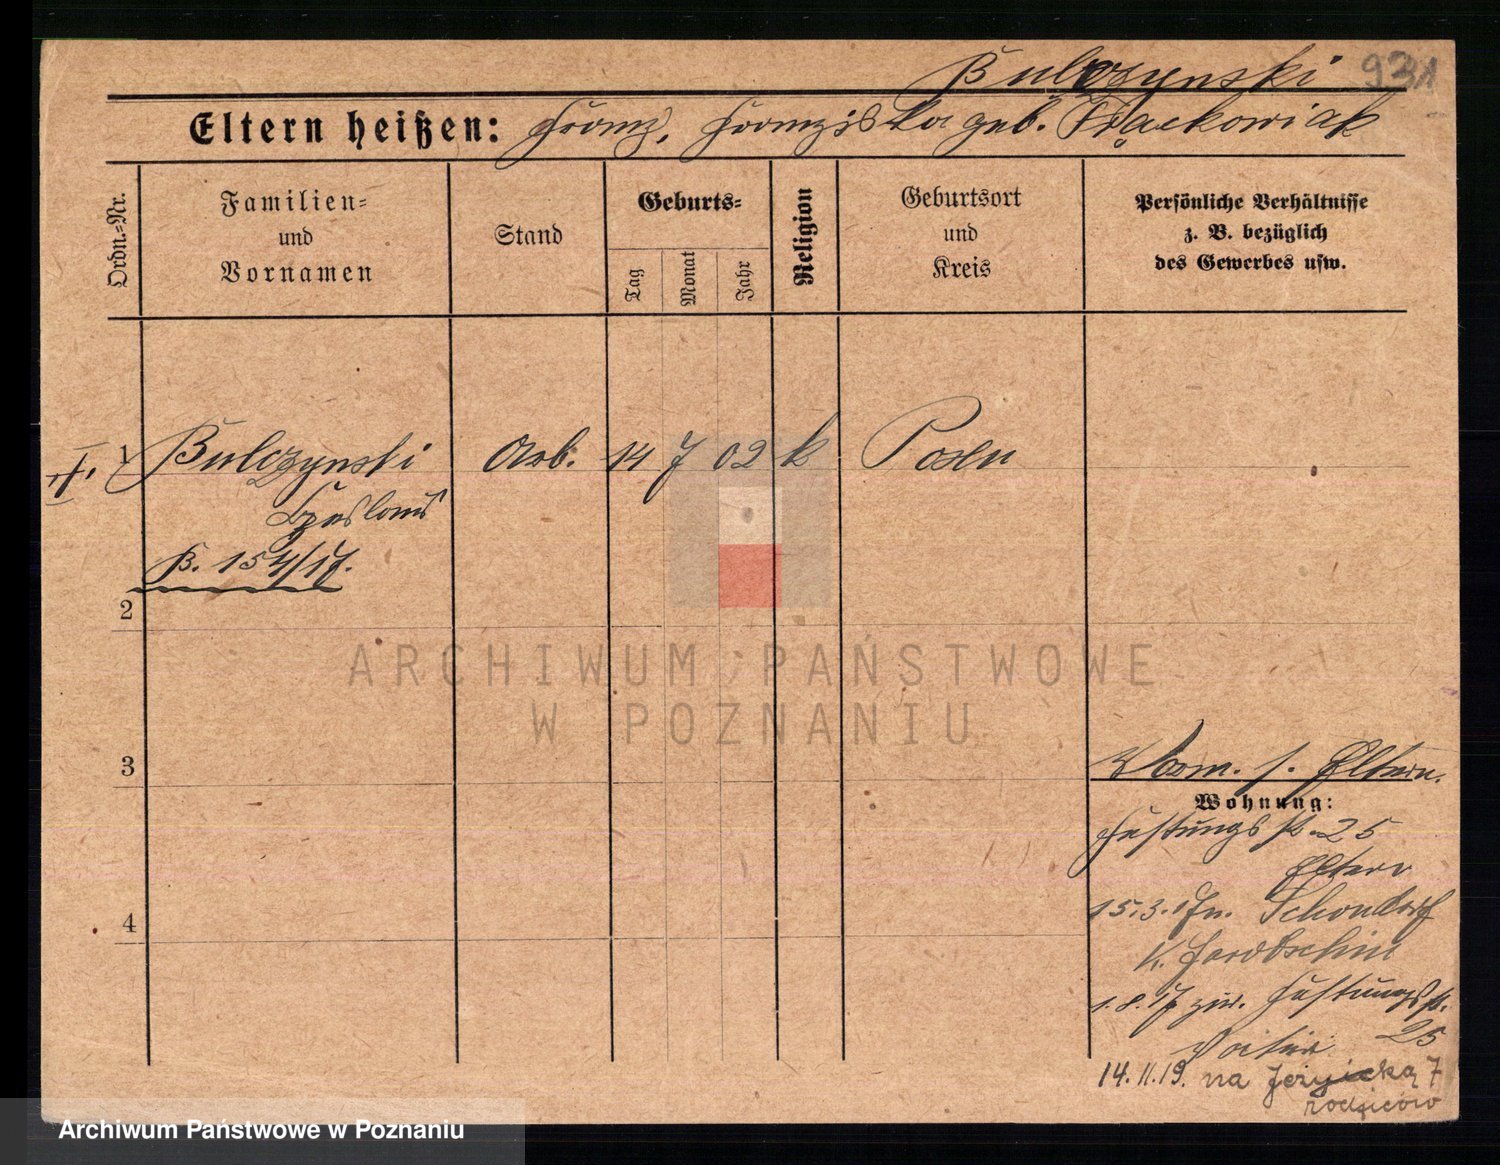 Bulczynski 931
Eltern heißen: Franz, Franziska geb. Ptackowiak
Ordn.-Nr.
Familien-
und
Vornamen
Stand
Geburts-
Tag
Monat
Jahr
Religion
Geburtsort
und
Kreis
Persönliche Verhältnisse
z. B. bezüglich
des Gewerbes usw.
1 Bulczynski Arb. 14 7 02 k Posen
Czeslaus
B. 154/17.
2
ARCHIWUM PAŃSTWOWE
W POZNANIU
3
Eltern.
Wohnung:
Festungsstr. 25
Eltern
15.3.17 n. Schondorf
K.
1.8.17 zur. Festungsstr.
25
14.11.19. na Jeżycką 7
rodziców
4
Archiwum Państwowe w Poznaniu